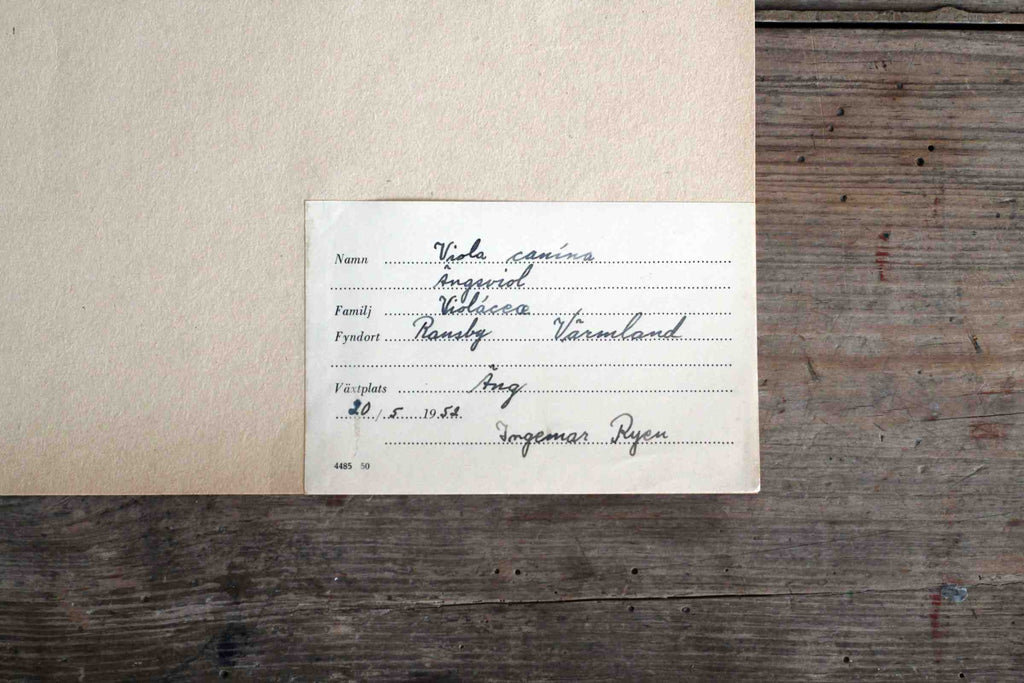 Namn Viola canina
Ängsviol
Familj Violáceæ
Fyndort Ransby Värmland
Växtplats Äng
20/5 1952
Ingemar Ryen
4485 50